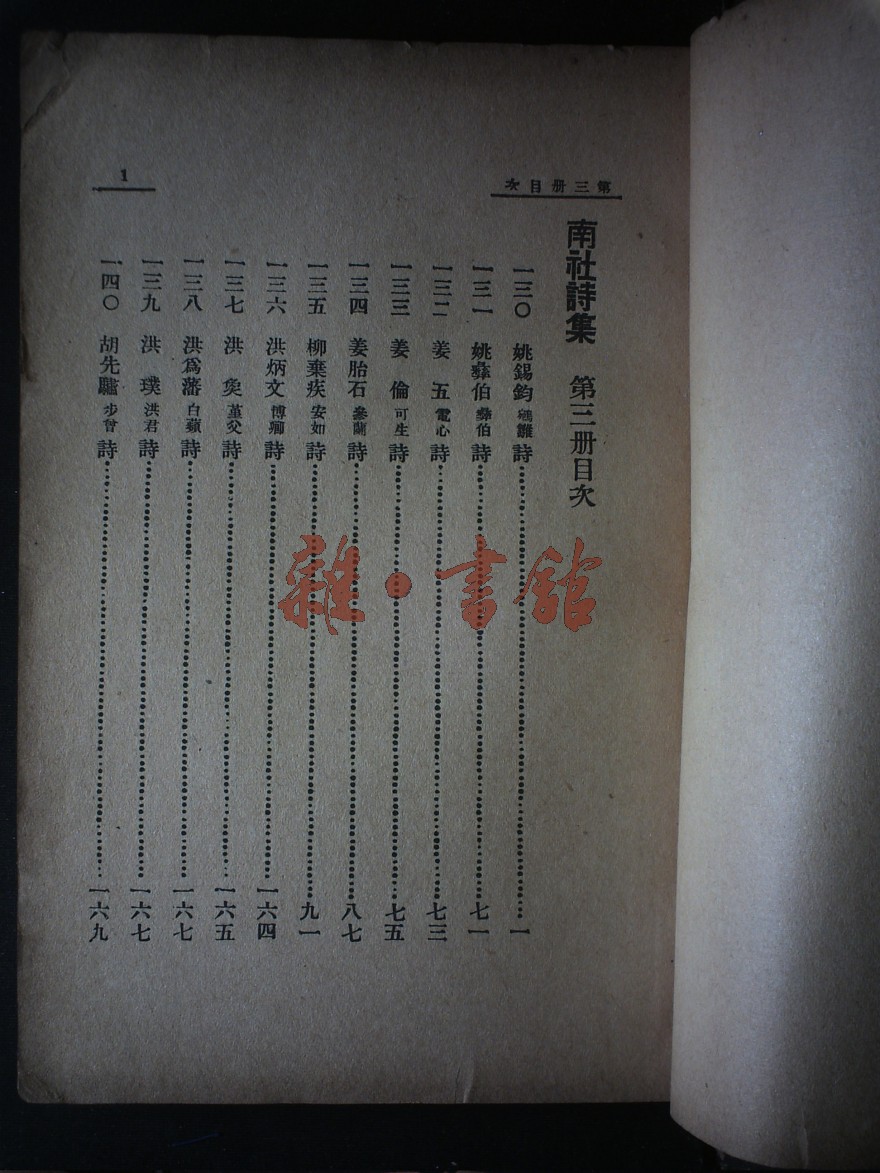 第三册目次
1
南社詩集 第三册目次
一三〇 姚錫鈞 鵷雛 詩……一
一三一 姚彝伯 彝伯 詩……七一
一三二 姜 五 電心 詩……七三
一三三 姜 倫 可生 詩……七五
一三四 姜胎石 參蘭 詩……八七
一三五 柳棄疾 安如 詩……九一
一三六 洪炳文 博卿 詩……一六四
一三七 洪 堇父 詩……一六五
一三八 洪爲藩 白蘋 詩……一六七
一三九 洪 璞 洪君 詩……一六七
一四〇 胡先驌 步曾 詩……一六九
雜·書館